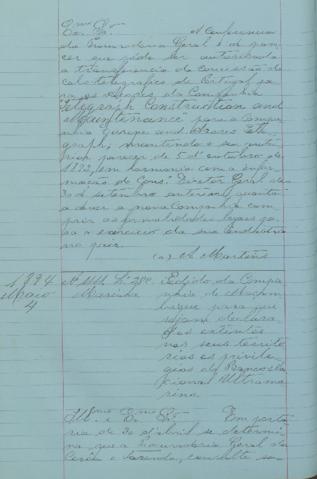 Exmo Sr. A Conferencia
da Procuradoria Geral é de pare-
cer que póde ser autorisada
a transferencia da concessão do
cabo telegrafico de Portugal pa-
ra os Açores, da Companhia
"Telegraph Construction and
Maintenance" para a Compa-
nhia Europe and Azores Tele-
graph, mantendo o seu ante-
rior parecer de 5 d'outubro de
1892, em harmonia com a infor-
mação do Cons. Diretor Geral de
30 de setembro anterior, quanto
a dever a nova Companhia cum-
prir as formalidades legaes pa-
ra o exercicio da sua industria
no paiz.
(a) A. Martens
1894
Maio
4
Nº Ml. L. 28º
Marinha
Pedido da Compa-
nhia de Moçam-
bique para que
sejam declara-
dos extentes
nos seus territo-
rios os privile-
gios do Banco Na-
cional Ultrama-
rino.
Illmo e Exmo Sr. Em porta-
ria de 30 d'abril se determi-
na que a Procuradoria Geral da
Corôa e Fazenda, consulte so-